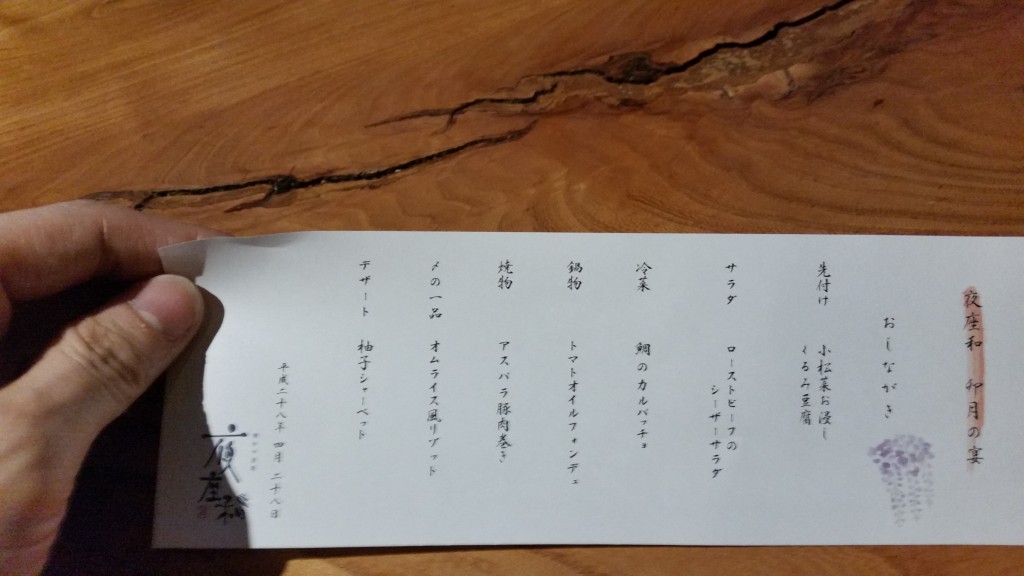 夜座和 卯月の宴
おしながき
先付け 小松菜お浸し
くるみ豆腐
サラダ ローストビーフの
シーザーサラダ
冷菜 鯛のカルパッチョ
鍋物 トマトオイルフォンデュ
焼物 アスパラ豚肉巻き
〆の一品 オムライス風リゾット
デザート 柚子シャーベット
平成二十八年 四月 二十八日
夜座和